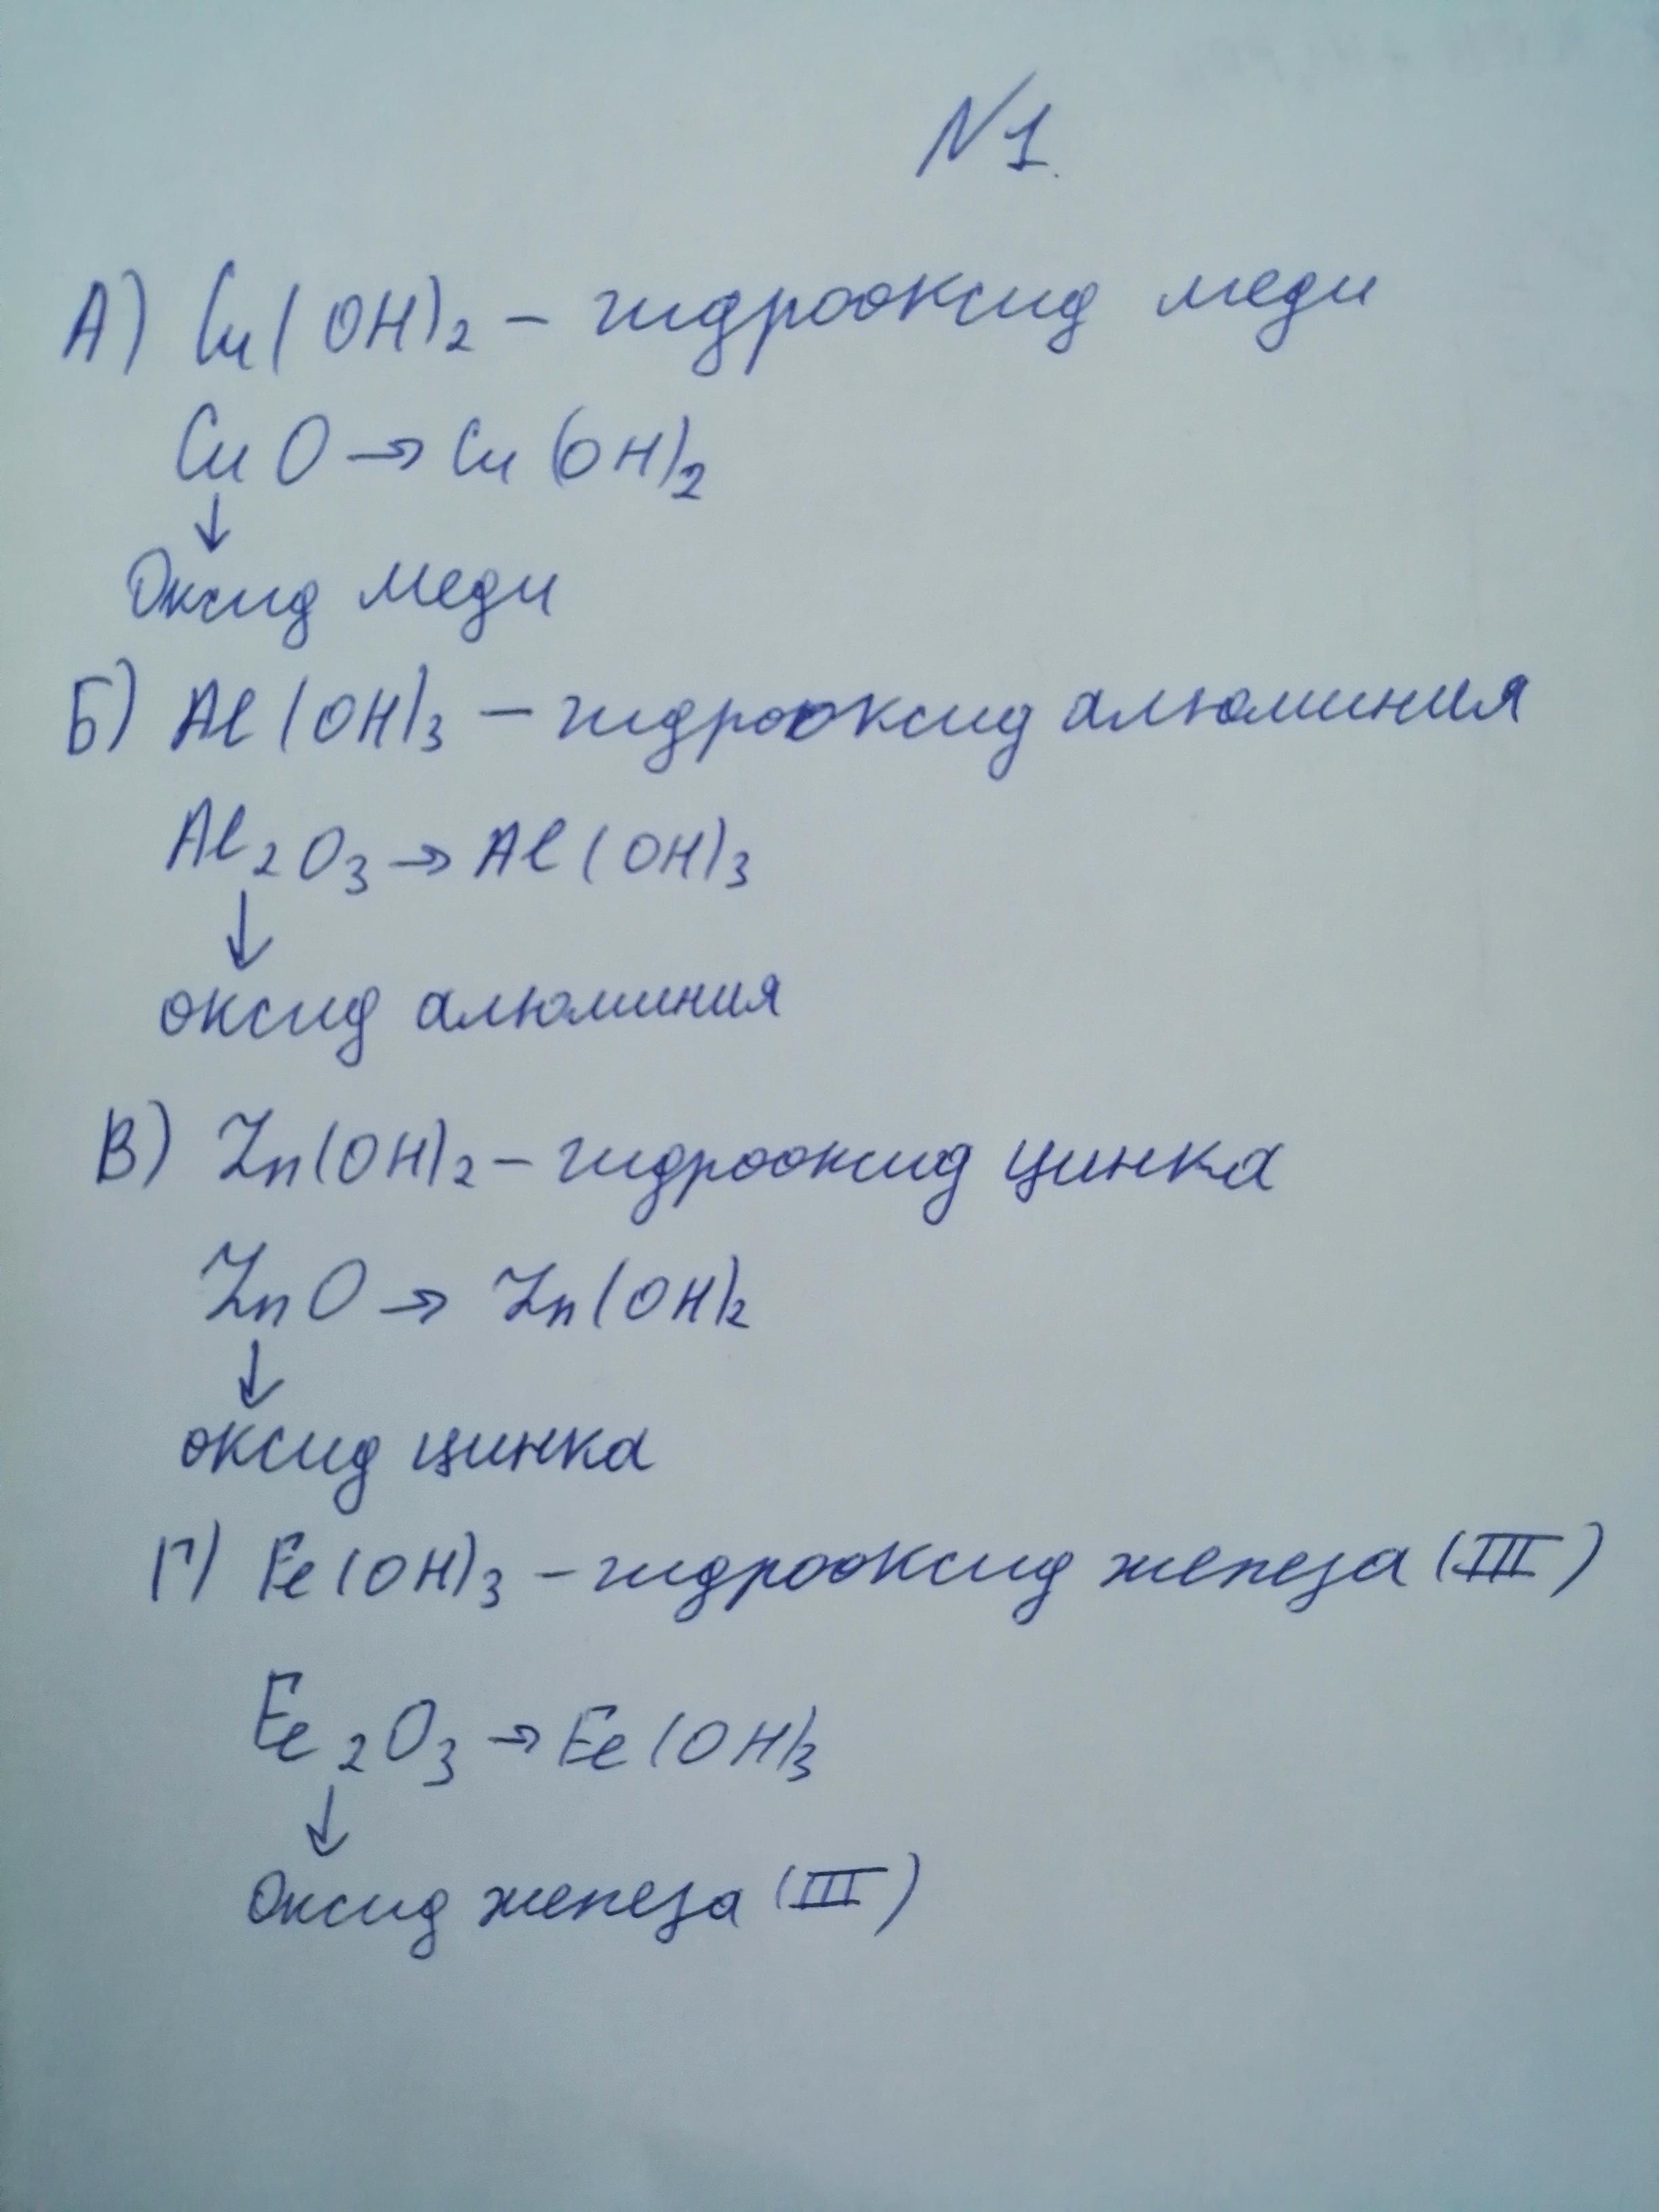 N1.
А) Cu(OH)2 – гидрооксид меди
CuO → Cu(OH)2
↓
Оксид меди
Б) Al(OH)3 – гидрооксид алюминия
Al2O3 → Al(OH)3
↓
оксид алюминия
В) Zn(OH)2 – гидрооксид цинка
ZnO → Zn(OH)2
↓
оксид цинка
Г) Fe(OH)3 – гидрооксид железа (III)
Fe2O3 → Fe(OH)3
↓
Оксид железа (III)